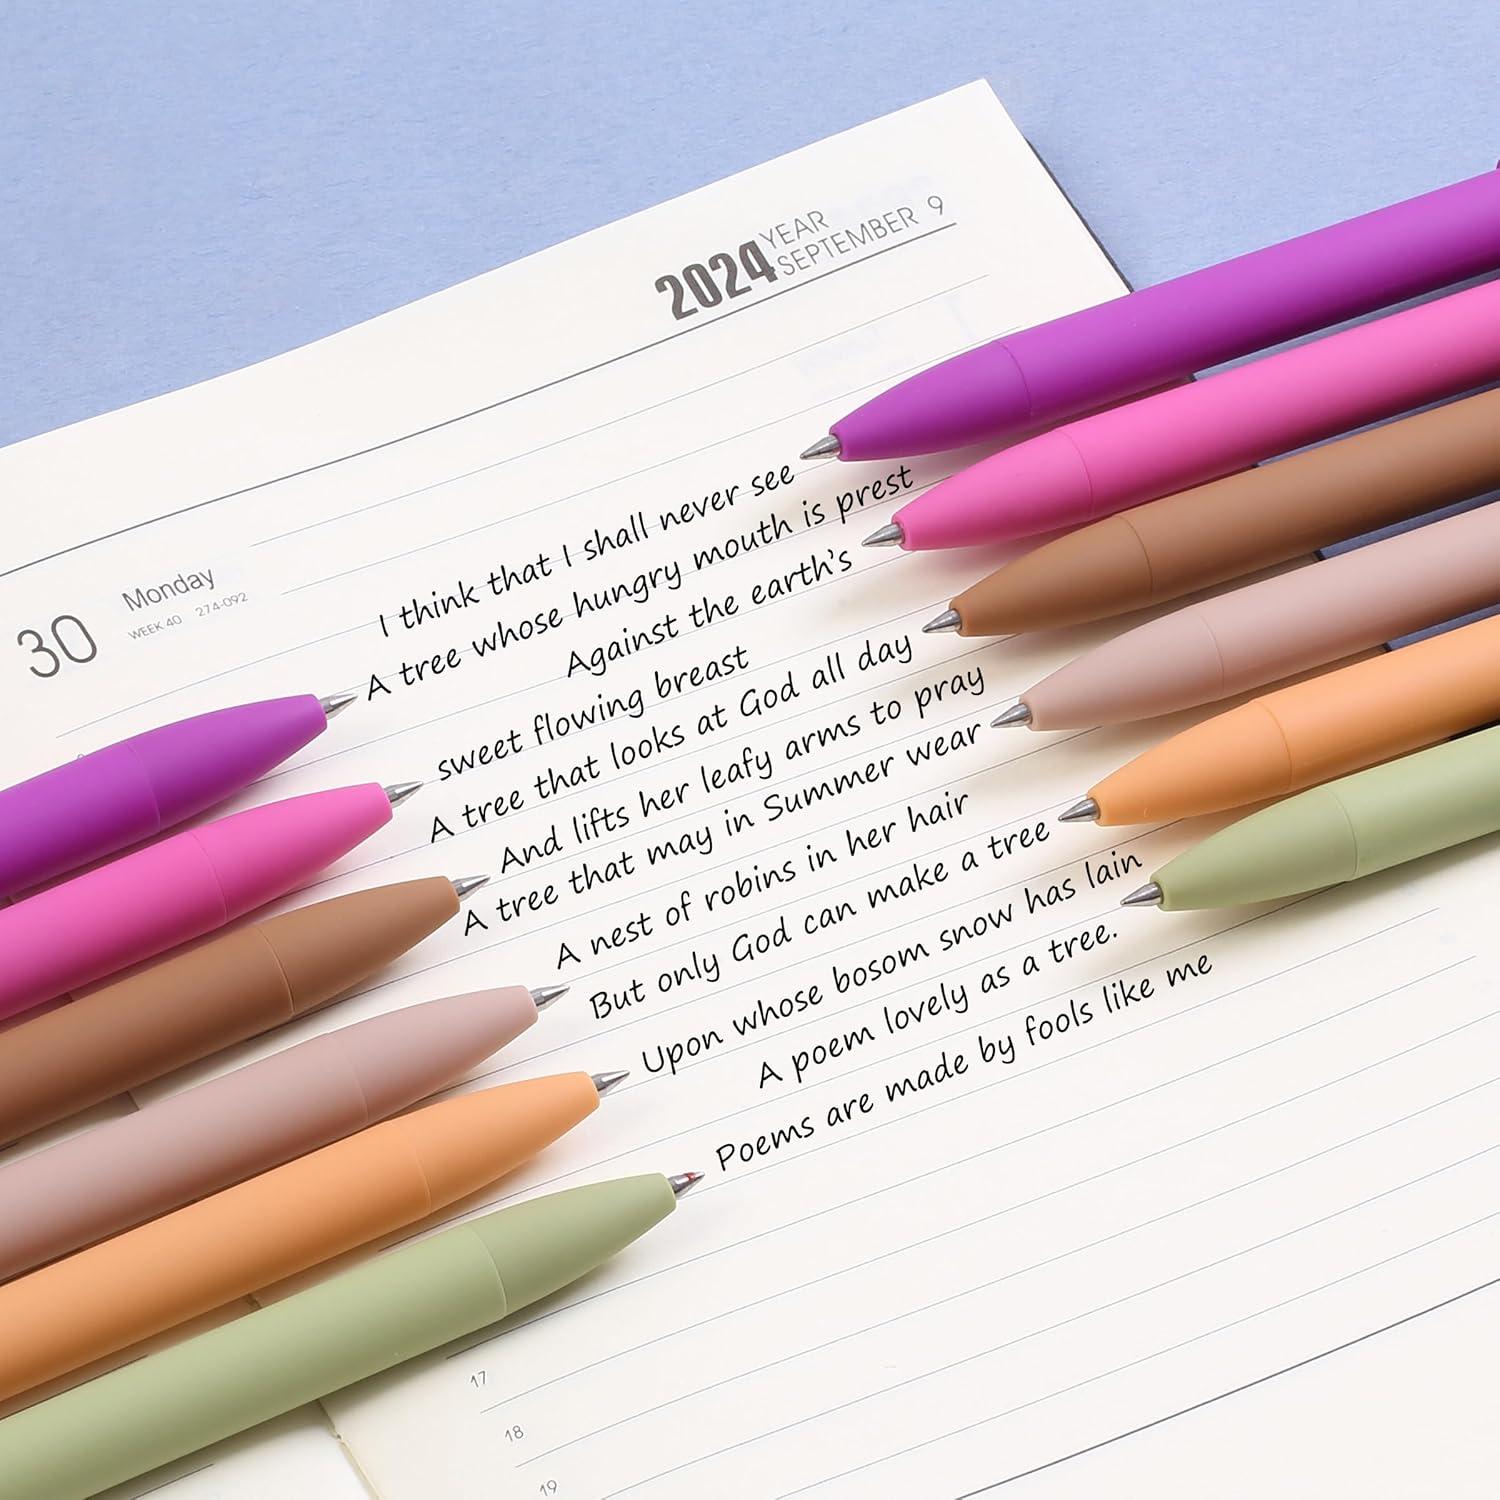 2024 YEAR
SEPTEMBER 9
30 Monday
WEEK 40 274-092
I think that I shall never see
A tree whose hungry mouth is prest
Against the earth's
sweet flowing breast
A tree that looks at God all day
And lifts her leafy arms to pray
A tree that may in Summer wear
A nest of robins in her hair
But only God can make a tree
Upon whose bosom snow has lain
A poem lovely as a tree.
Poems are made by fools like me
17
18
19